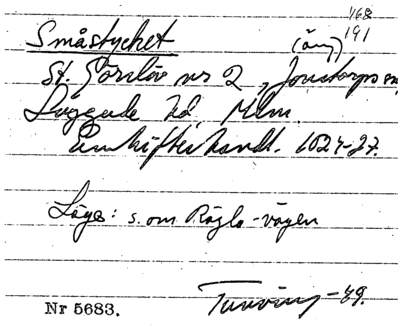 468
Småstycket (äng) 191
St. Görslöv nr 2, Jonstorps sn
Luggude hd. Mlm.
Enskifteshandl. 1824-27.
Läge: s. om Rögle-vägen
Nr 5683. Tunving -49.